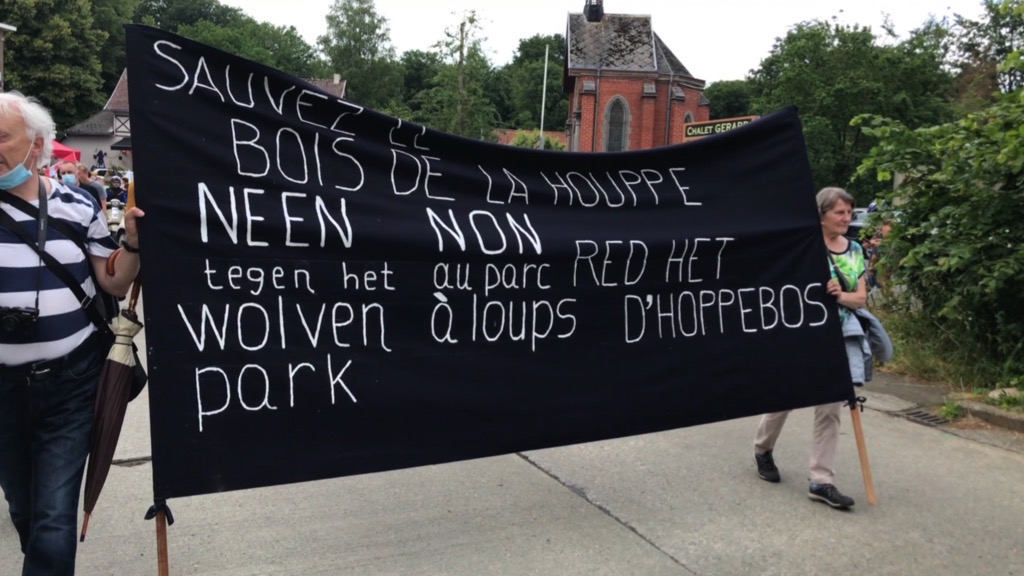 SAUVEZ LE
BOIS DE LA HOUPPE
NEEN NON
tegen het au parc RED HET
wolven à loups D'HOPPEBOS
park
CHALET GERARD